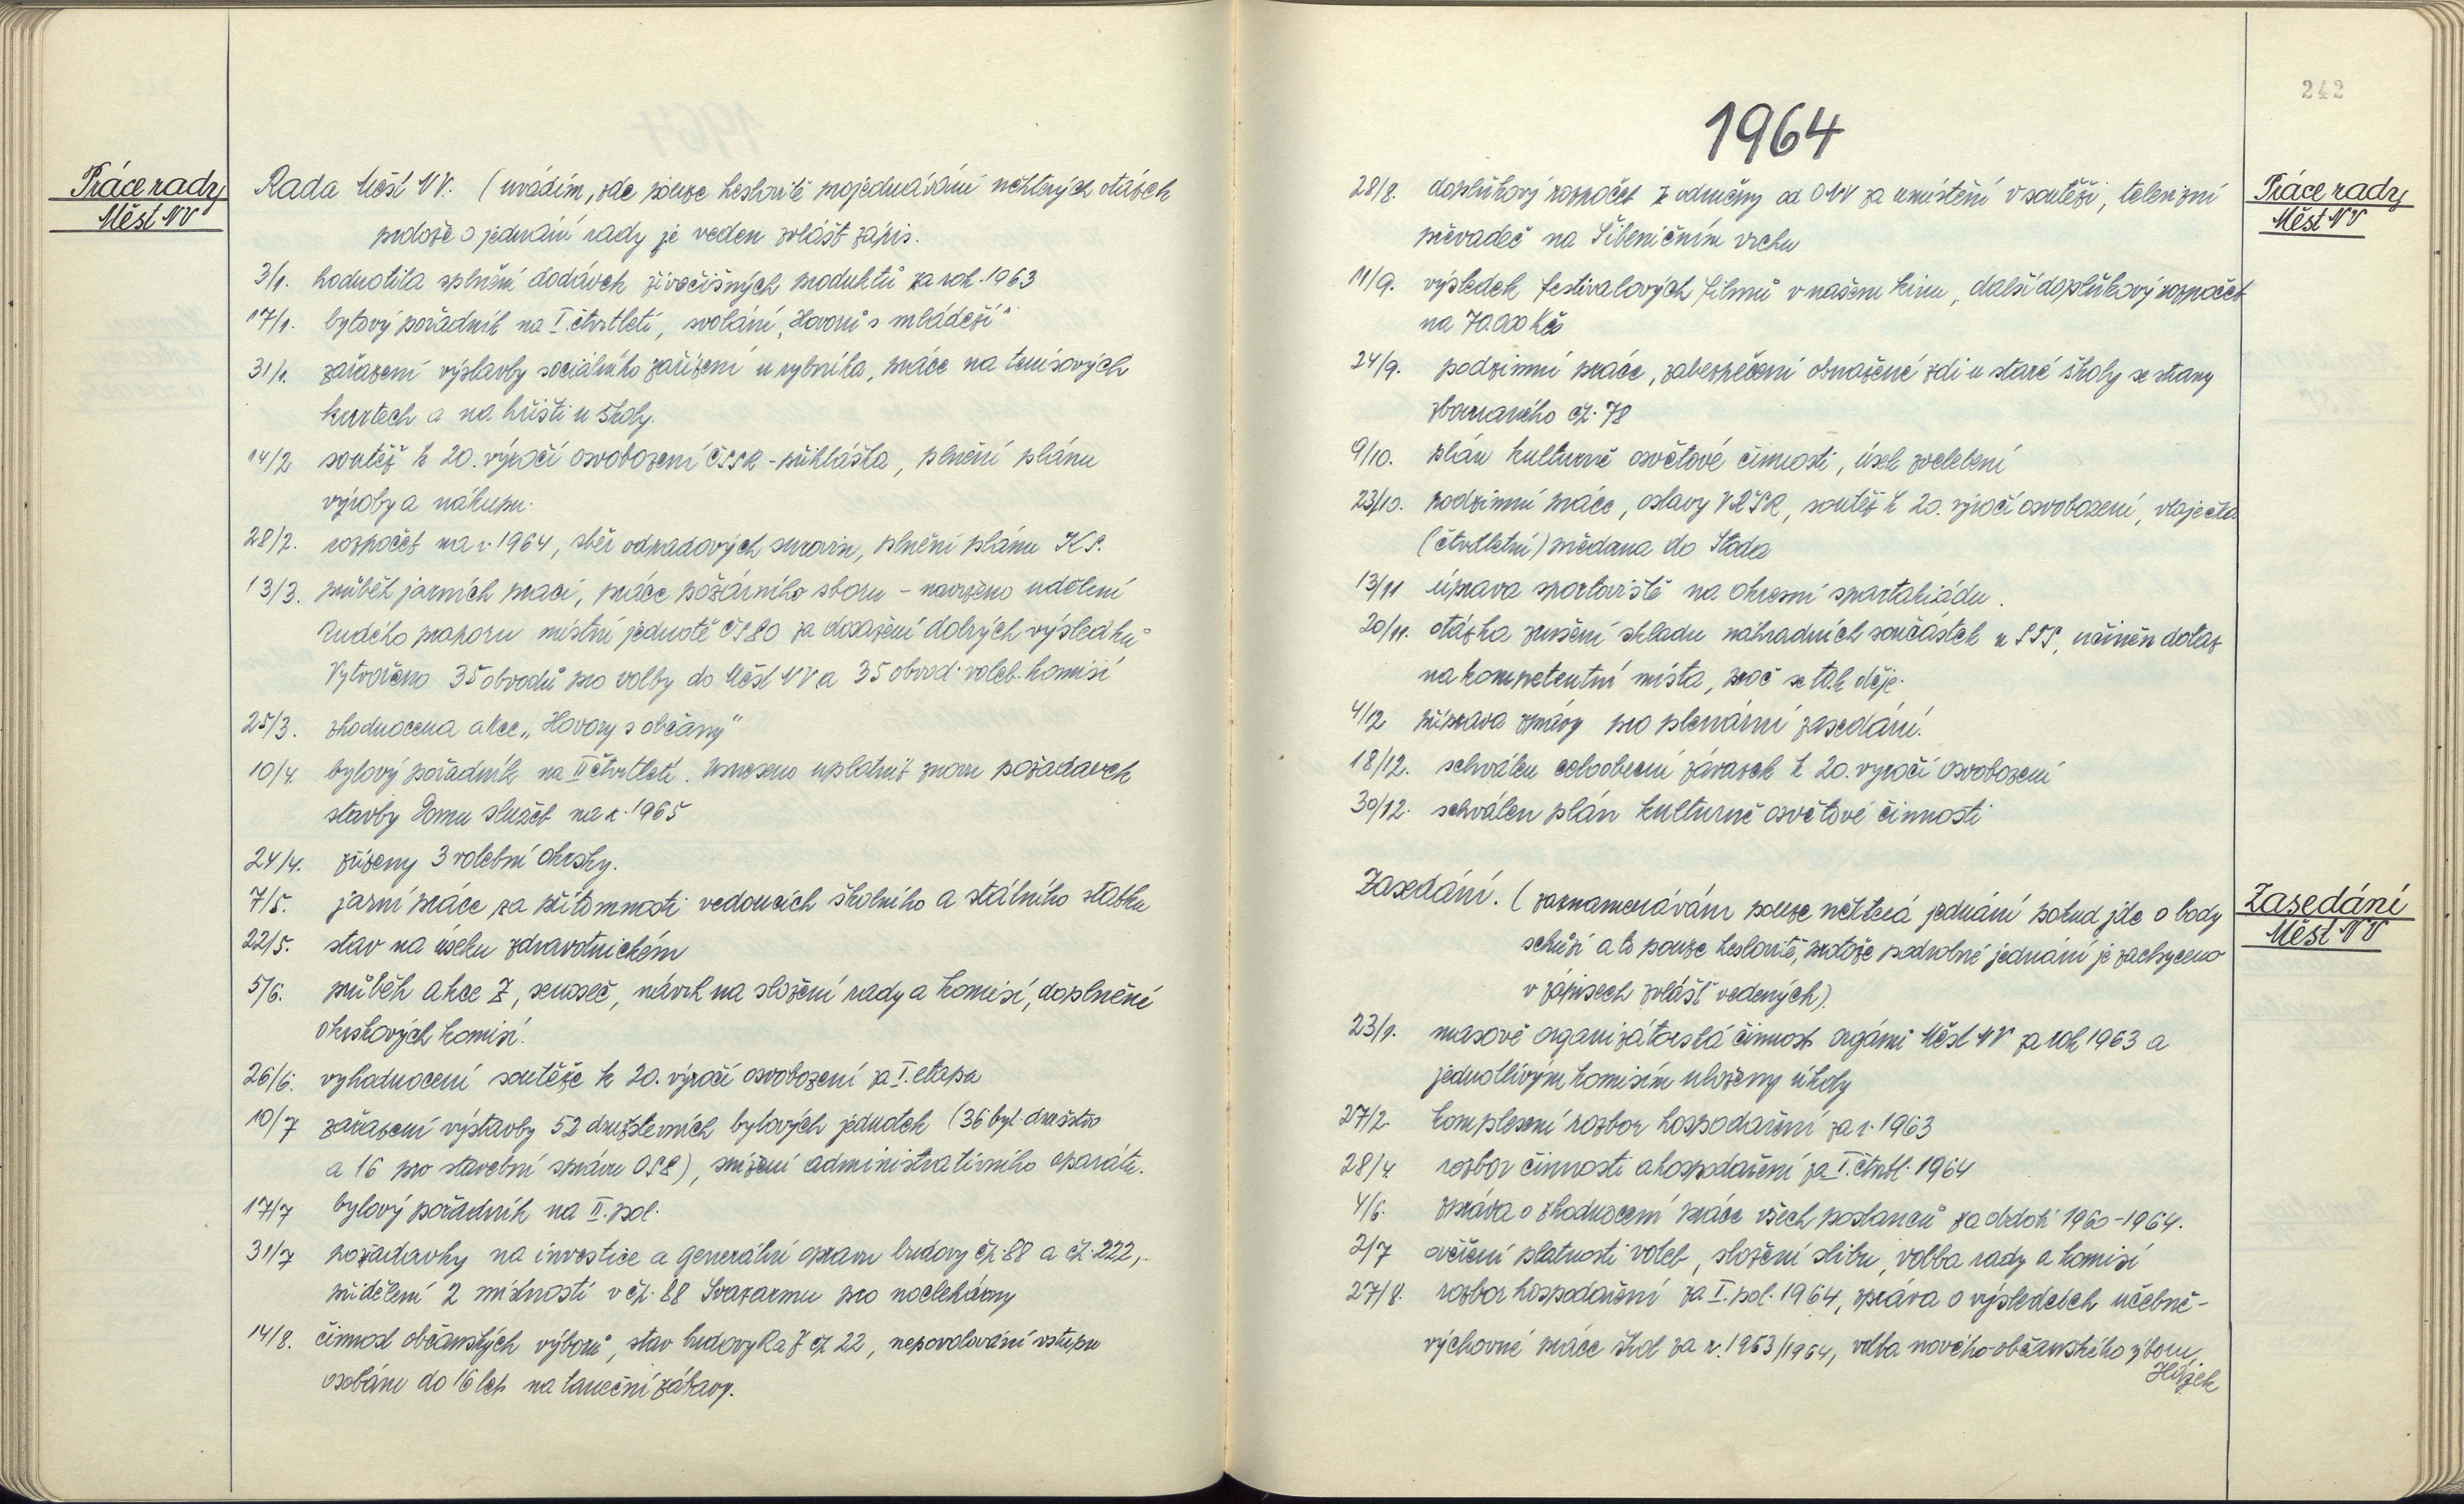 Práce rady
Měst NV
Rada Měst NV. (uvádím, zde pouze heslovitě projednávání některých otázek
protože o jednání rady je veden zvlášť zápis.
3/1. hodnotila splnění dodávek živočišných produktů za rok 1963
17/1. bytový pořadník na I. čtvrtletí, svolání „Hovorů s mládeží"
31/1. zařazení výstavby sociálního zařízení u rybníka, práce na tenisových
kurtech a na hřišti u školy.
14/2 soutěž k 20. výročí osvobození ČSSR - přihláška, plnění plánu
výroby a nákupu.
28/2. rozpočet na r. 1964, sběr odpadových surovin, plnění plánu KS.
13/3. průběh jarních prací, práce požárního sboru - navrženo udělení
Rudého praporu místní jednotě ČSPO za dosažení dobrých výsledků
Vytvořeno 35 obvodů pro volby do Měst NV a 35 obvod. voleb. komisí
25/3. zhodnocena akce „Hovory s občany"
10/4. bytový pořadník na II čtvrtletí. Usneseno uplatnit znovu požadavek
stavby Domu služeb na r. 1965
24/4. zřízeny 3 volební okrsky.
7/5. jarní práce za přítomnosti vedoucích školního a státního statku
22/5. stav na úseku zdravotnickém
5/6. průběh akce Z, senoseč, návrh na složení rady a komisí, doplnění
okrskových komisí.
26/6. vyhodnocení soutěže k 20. výročí osvobození za I. etapu
10/7 zařazení výstavby 52 družstevních bytových jednotek (36 byt. družstvo
a 16 pro stavební správu OSP), snížení administrativního aparátu.
17/7 bytový pořadník na II. pol.
31/7 požadavky na investice a generální opravu budovy čp. 88 a čp. 222,
přidělení 2 místností v čp. 88 Svazarmu pro noclehárny
14/8. činnost občanských výborů, stav budovy RaJ čp 22, nepovolování vstupu
osobám do 16 let na taneční zábavy.
242
1964
Práce rady
Měst NV
28/8. doplňkový rozpočet z odměny od ONV za umístění v soutěži, televizní
převaděč na Šibeničním vrchu
11/9. výsledek festivalových filmů v našem kinu, další doplňkový rozpočet
na 70.000 Kčs
24/9. podzimní práce, zabezpečení obnažené zdi u staré školy se strany
zbouraného čp. 78
9/10. plán kulturně osvětové činnosti, úsek zvelebení
23/10. podzimní práce, oslavy VŘSR, soutěž k 20. výročí osvobození, vlaječka
(čtvrtletní) předána do Stoda
13/11 úprava sportoviště na okresní spartakiádu.
20/11. otázka zrušení skladu náhradních součástek u STS, učiněn dotaz
na kompetentní místa, proč se tak děje.
4/12 příprava zprávy pro plenární zasedání.
18/12. schválen celoobecní závazek k 20. výročí osvobození
30/12. schválen plán kulturně osvětové činnosti
Zasedání
Měst NV
Zasedání. (zaznamenávám pouze některá jednání pokud jde o body
schůzí a to pouze heslovitě, protože podrobné jednání je zachyceno
v zápisech zvlášť vedených).
23/1. masově organizátorská činnost orgánů Měst NV za rok 1963 a
jednotlivým komisím uloženy úkoly
27/2. komplexní rozbor hospodaření za r. 1963
28/4. rozbor činnosti a hospodaření za I. čtvrtl. 1964
4/6. zpráva o zhodnocení práce všech poslanců za období 1960-1964.
2/7 ověření platnosti voleb, složení slibu, volba rady a komisí
27/8. rozbor hospodaření za I. pol. 1964, zpráva o výsledcích učebně-
výchovné práce škol za r. 1963/1964, volba nového občanského výboru